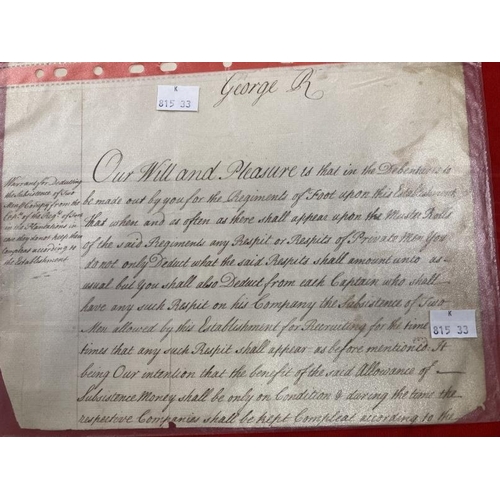 George R
K
815 33
Our Will and Pleasure is that in the Debentures to
be made out by you for the Regiments of Foot upon this Establishment
that when and as often as there shall appear upon the Muster Rolls
of the said Regiments any Respit or Respits of Private Men You
do not only Deduct what the said Respits shall amount unto as
usual but You shall also Deduct from each Captain who shall
have any such Respit on his Company the Subsistence of Two
Men allowed by this Establishment for Recruiting for the time or
times that any such Respit shall appear as before mentioned It
being Our intention that the benefit of the said Allowance of
Subsistence Money shall be only on Condition & during the time the
respective Companies shall be kept Compleat according to the
Warrant for Deducting
the Subsistence of Two
Men p Compy from the
Capts of the Regts of
in the Plantations in
case they do not keep their
Complyes according to
the Establishment
K
815 33